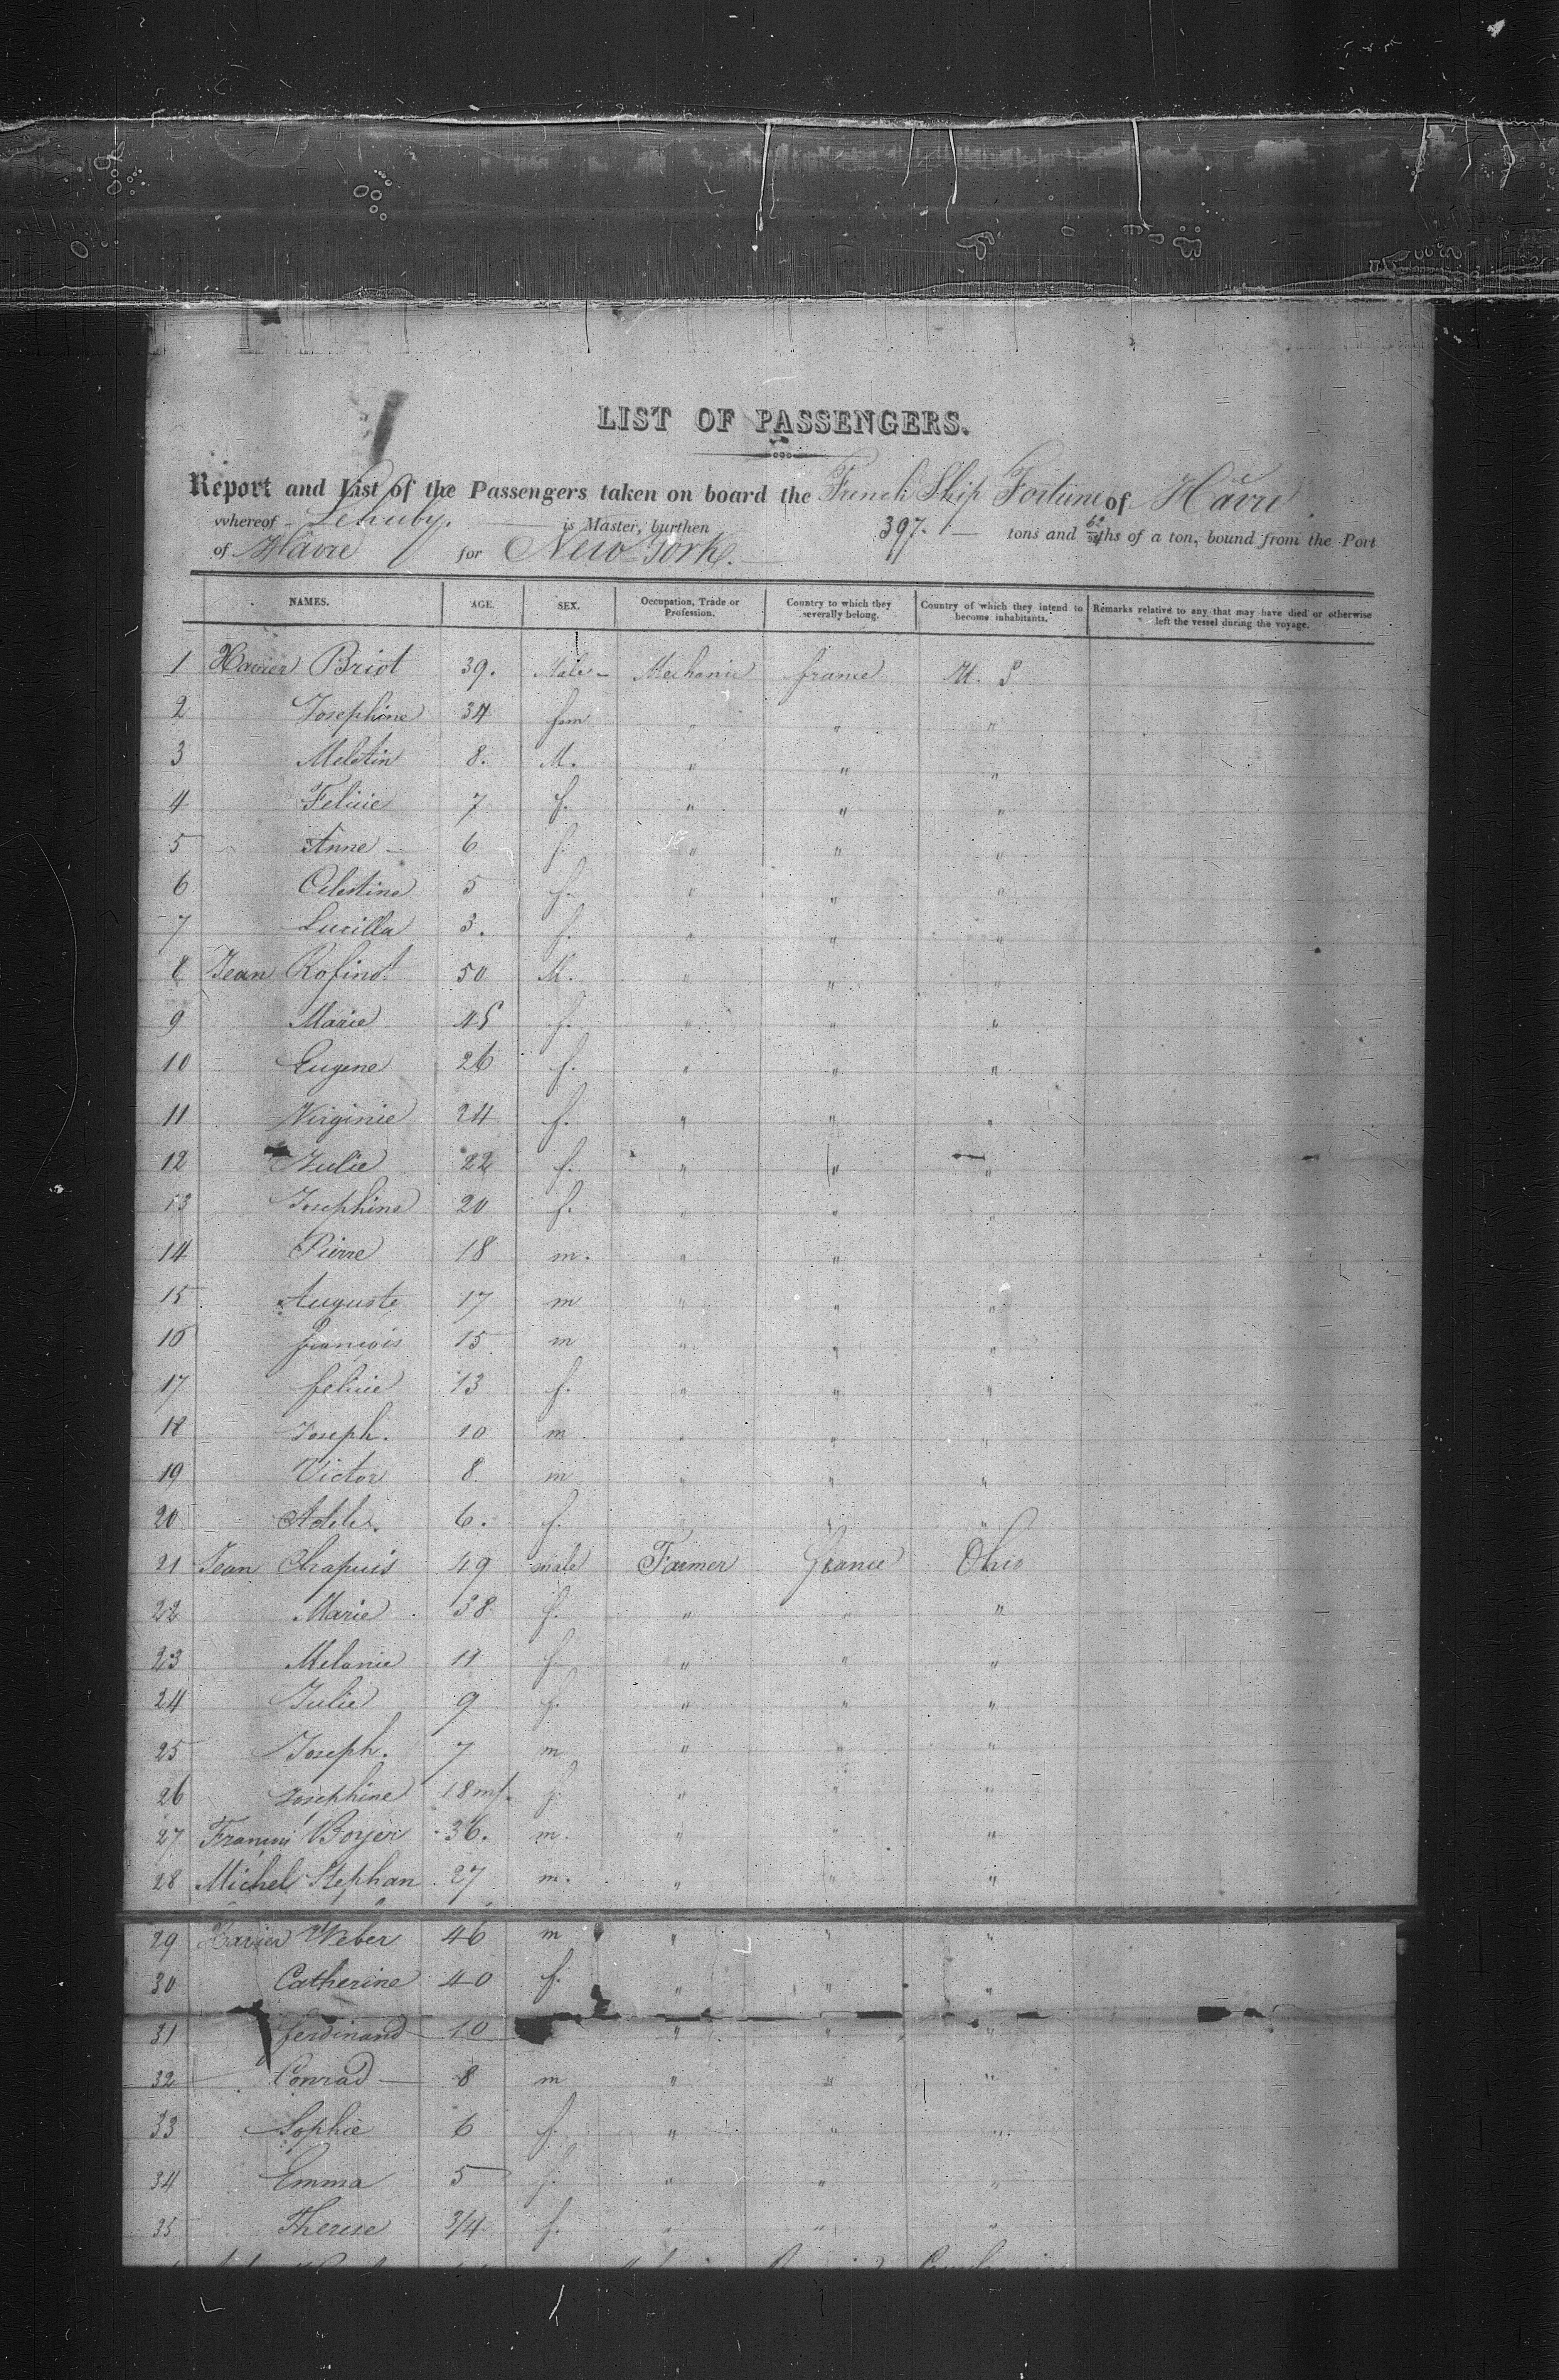 LIST OF PASSENGERS.
Report and List of the Passengers taken on board the French Ship Fortune of Hâvre
whereof Lehuby. is Master, burthen 397. tons and ths of a ton, bound from the Port
of Hâvre for New York.
NAMES. AGE. SEX. Occupation, Trade or Profession. Country to which they severally belong. Country of which they intend to become inhabitants. Remarks relative to any that may have died or otherwise left the vessel during the voyage.
1 Xavier Briot 39. Male Mechanic france U. S
2 Josephine 34 fem " " "
3 Meletin 8. M. " " "
4 Felicie 7 f. " " "
5 Anne 6 f. " " "
6 Celestine 5 f. " " "
7 Lucilla 3. f. " " "
8 Jean Rofinot 50 M. " " "
9 Marie 45 f. " " "
10 Eugene 26 f. " " "
11 Virginie 24 f. " " "
12 Julie 22 f. " " "
13 Josephine 20 f. " " "
14 Pierre 18 m. " "
15 Auguste 17 m " " "
16 françois 15 m " " "
17 felicie 13 f. " " "
18 Joseph. 10 m " " "
19 Victor 8 m " " "
20 Adele. 6. f. " " "
21 Jean Chapuis 49 male Farmer France Ohio
22 Marie 38 f. " " "
23 Melanie 11 f. " " "
24 Julie 9 f. " " "
25 Joseph. 7 m " " "
26 Josephine 18 m/. f. " " "
27 Boyer 36. m. " " "
28 Michel Stephan 27 m. " " "
29 Xavier Weber 46 m " " "
30 Catherine 40 f. " " "
31 ferdinand 10 " " "
32 Conrad 8 m " " "
33 Sophie 6 f. " " "
34 Emma 5 f. " " "
35 Therese 3/4 f. " " "